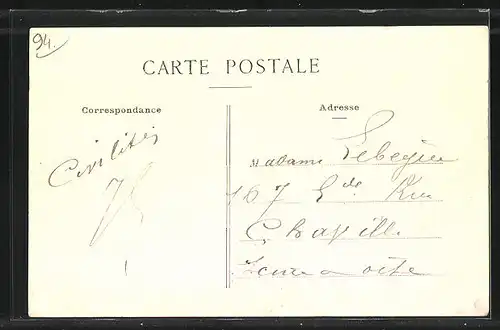 94.
CARTE POSTALE
Correspondance
Adresse
Civilités
Madame Lebegue
167 Gde Rue
Chaville
Seine et Oise